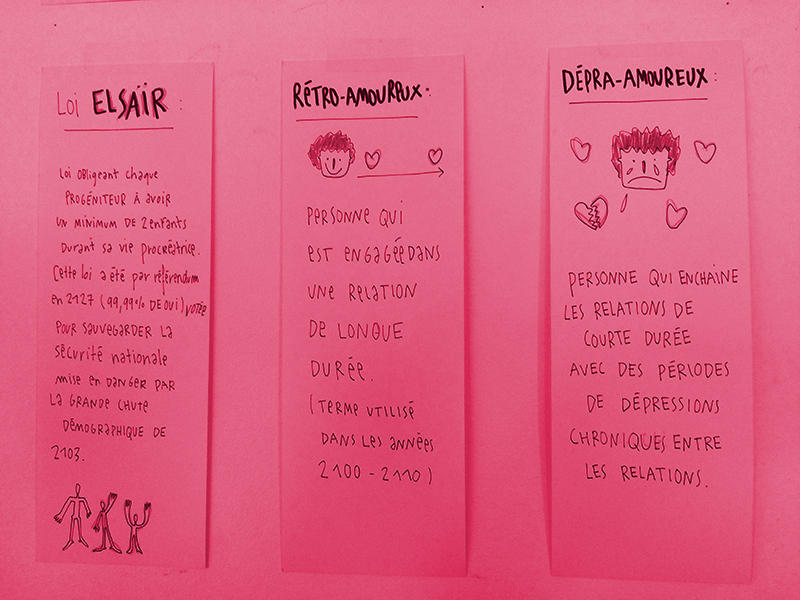 Loi ELSAÏR :
Loi obligeant chaque
PROGÉNITEUR À AVOIR
UN MINIMUM DE 2 ENFANTS
DURANT SA VIE PROCRÉATRICE.
Cette loi a été par référendum
en 2127 (99,99% DE OUI) VOTÉE
POUR SAUVEGARDER LA
SÉCURITÉ NATIONALE
MISE EN DANGER PAR
LA GRANDE CHUTE
DÉMOGRAPHIQUE DE
2103.
RÉTRO-AMOUREUX :
PERSONNE QUI
EST ENGAGÉE DANS
UNE RELATION
DE LONGUE
DURÉE.
(TERME UTILISÉ
DANS LES ANNÉES
2100 - 2110)
DÉPRA-AMOUREUX :
PERSONNE QUI ENCHAINE
LES RELATIONS DE
COURTE DURÉE
AVEC DES PÉRIODES
DE DÉPRESSIONS
CHRONIQUES ENTRE
LES RELATIONS.